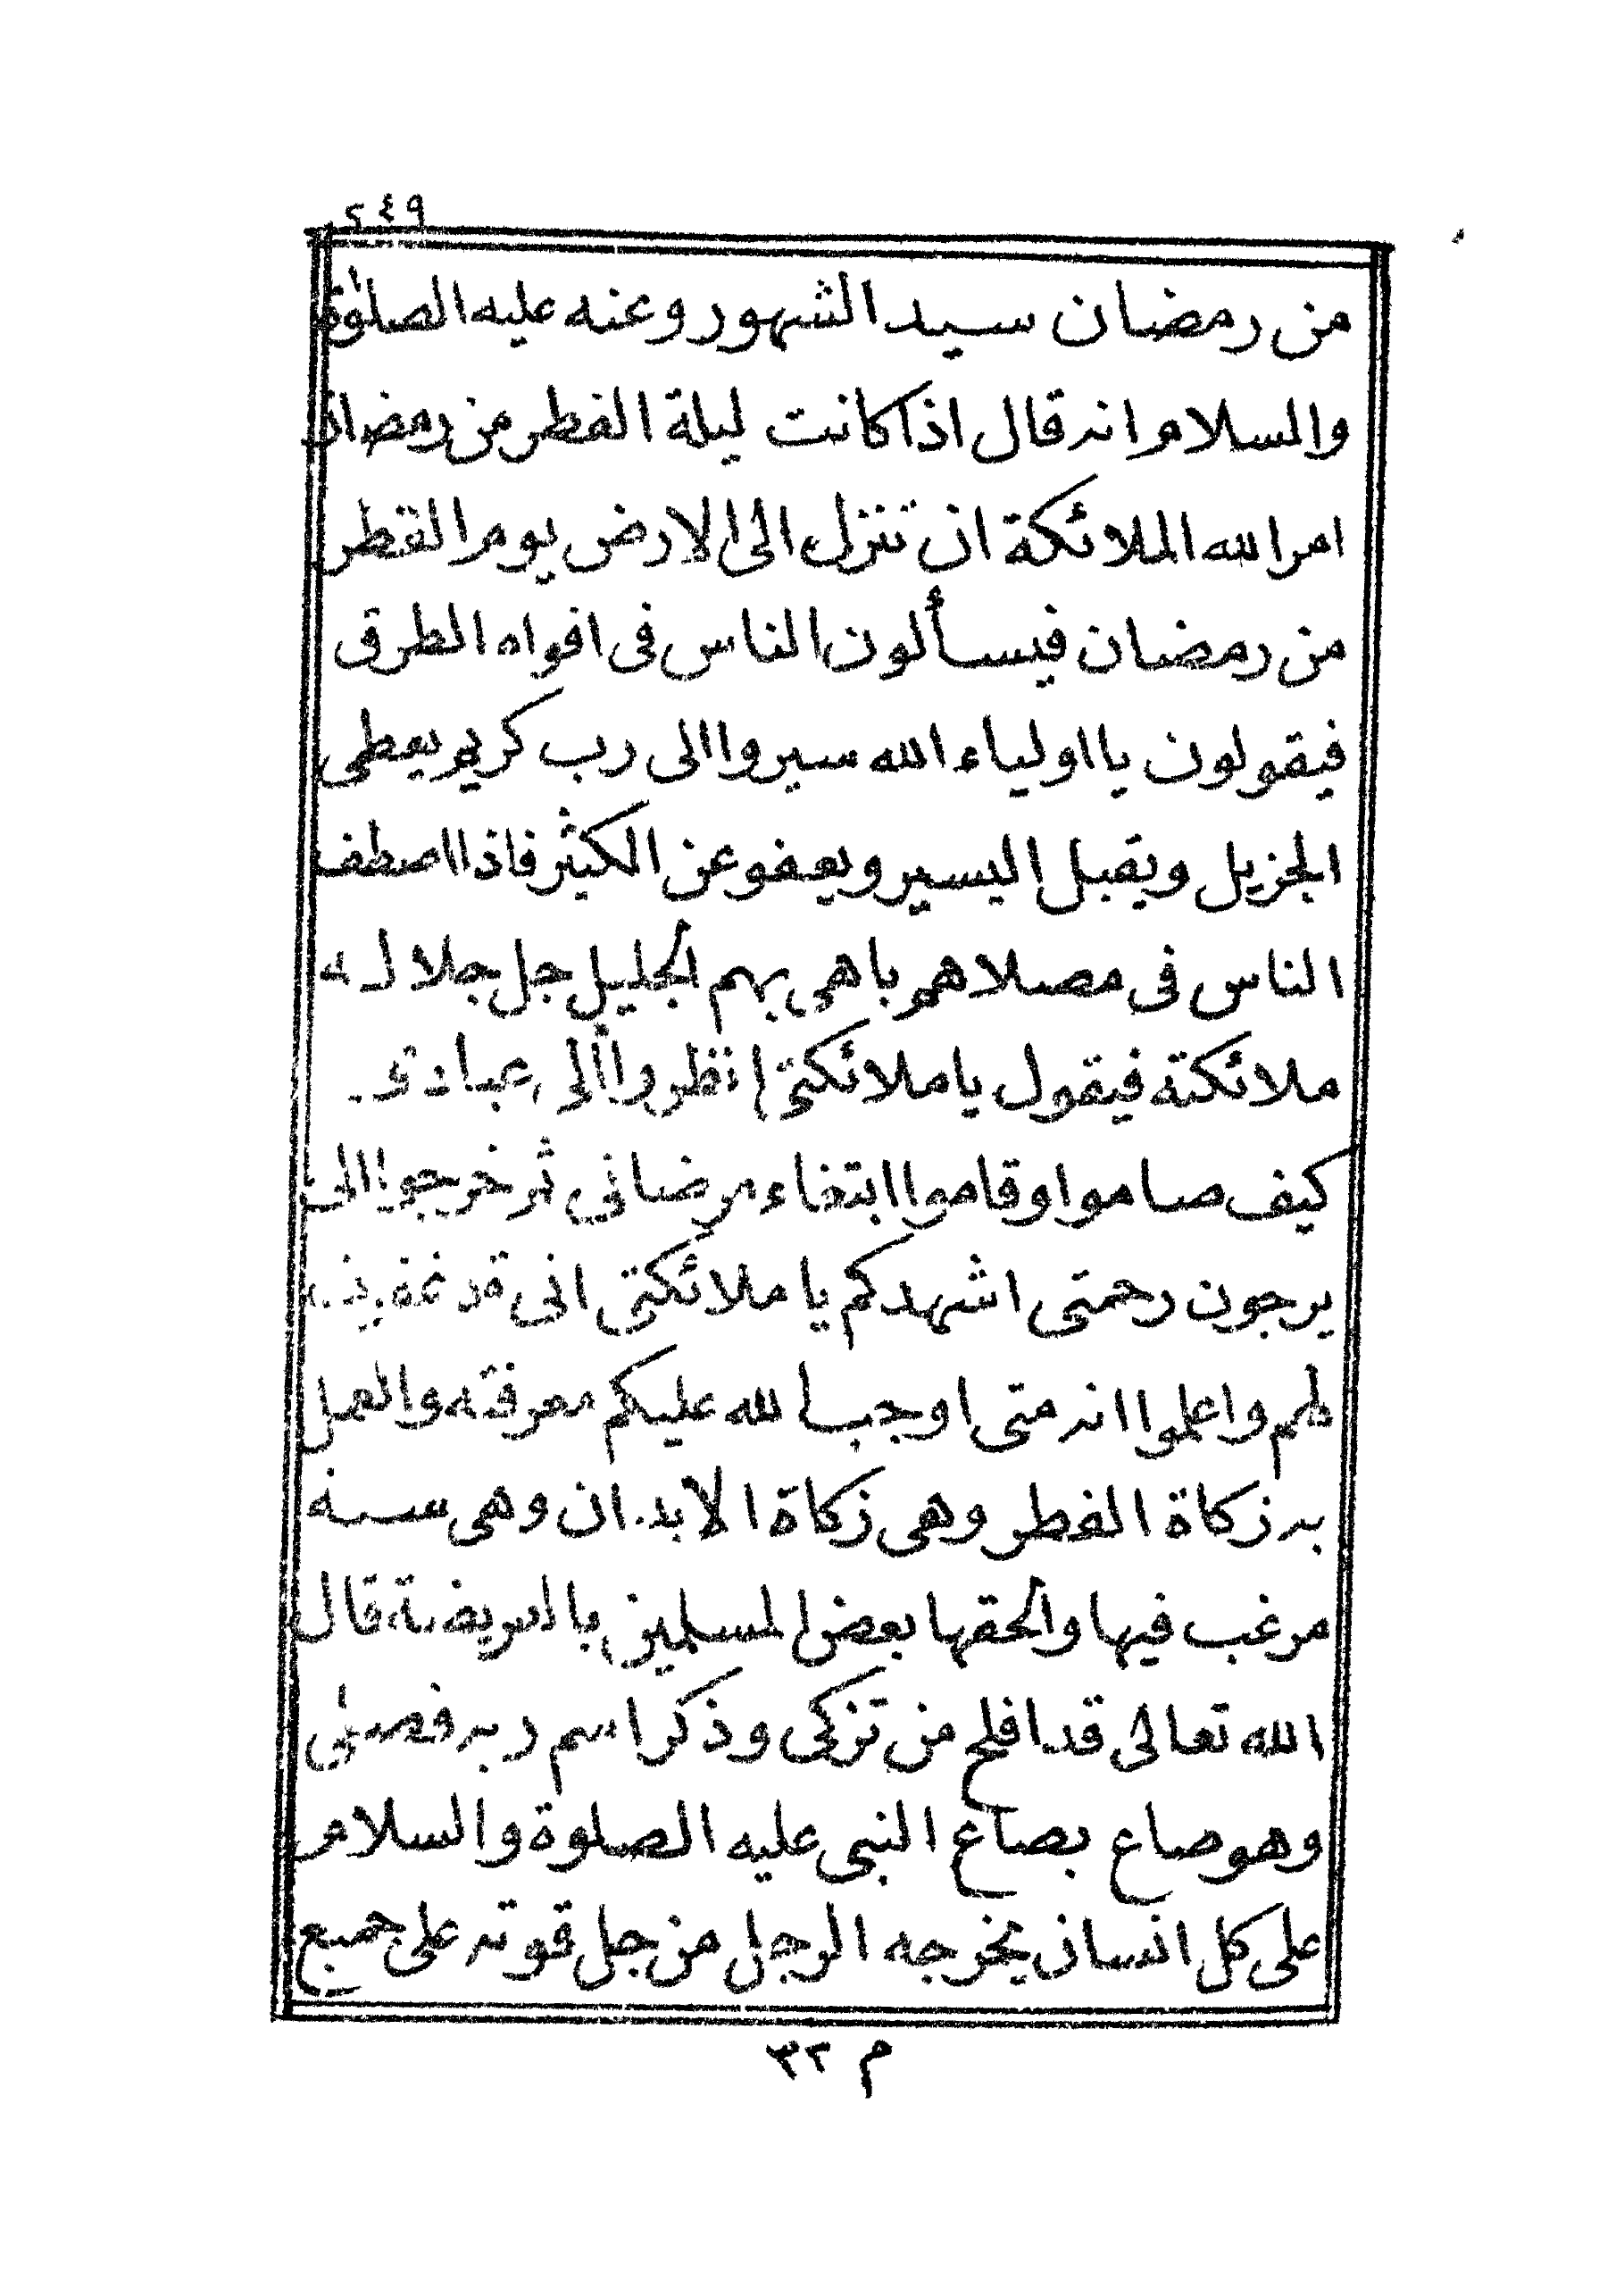 ٢٤٩
من رمضان سيد الشهور وعنه عليه الصلوٰة
والسلام انه قال اذا كانت ليلة الفطر من رمضان
امر الله الملائكة ان تنزل الى الارض يوم القطر
من رمضان فيسألون الناس في افواه الطرق
فيقولون يا اولياء الله سيروا الى رب كريم يعطي
الجزيل ويقبل اليسير ويعفو عن الكثير فاذا اصطف
الناس في مصلاهم باهى بهم الجليل جل جلاله
ملائكته فيقول يا ملائكتي انظروا ألى عبادي
كيف صاموا وقاموا ابتغاء مرضاتي ثم خرجوا الى
يرجون رحمتي اشهدكم يا ملائكتي اني قد غفرت
لهم واعلموا انه متى اوجب الله عليكم معرفته والعمل
به زكاة الفطر وهي زكاة الابدان وهي سنة
مرغب فيها والحقها بعض المسلمين بالفريضة قال
الله تعالى قد افلح من تزكى وذكر اسم ربه فصلى
وهو صاع بصاع النبي عليه الصلوة والسلام
على كل انسان يخرجه الرجل من جل قوته على جميع
م ٣٢